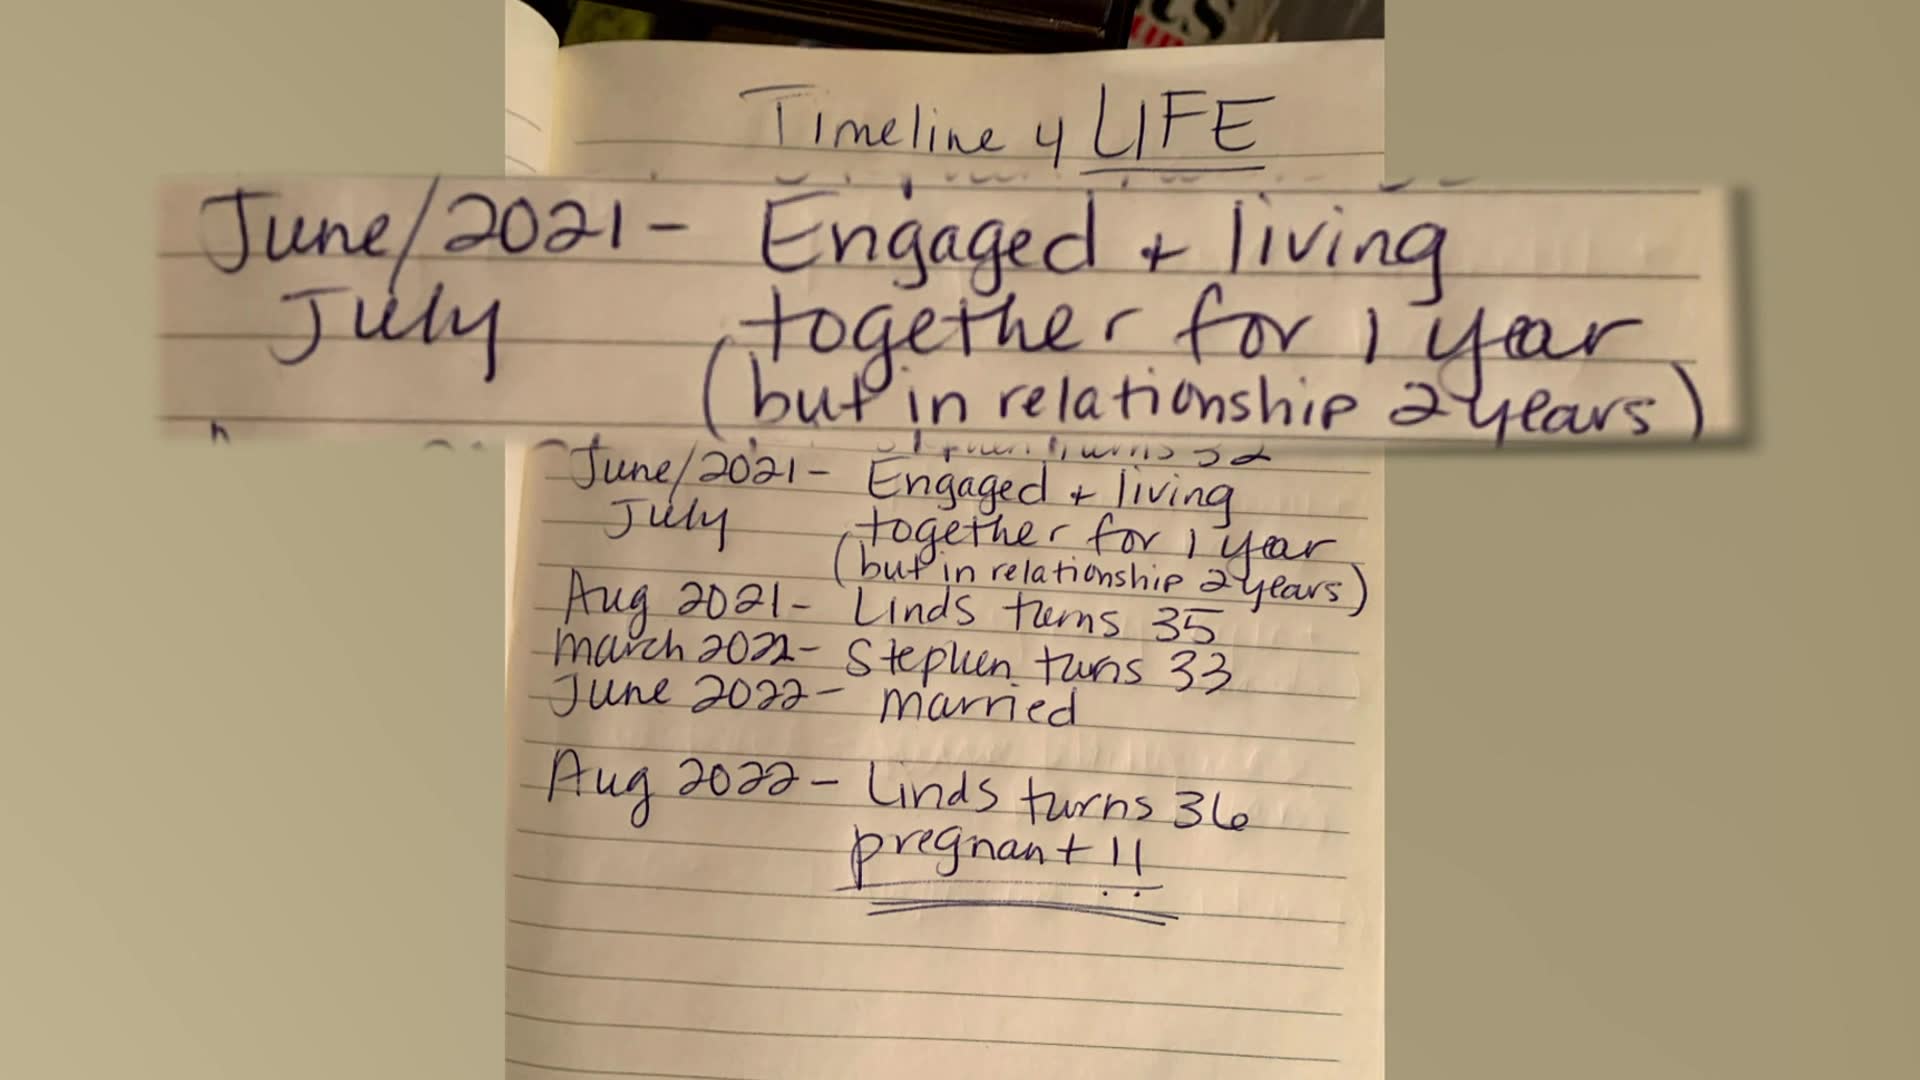 Timeline 4 LIFE
June/2021 - Engaged + living
July together for 1 year
(but in relationship 2 years)
turns 32
June/2021 - Engaged + living
July together for 1 year
(but in relationship 2 years)
Aug 2021 - Linds turns 35
March 2022 - Stephen turns 33
June 2022 - married
Aug 2022 - Linds turns 36
pregnant !!